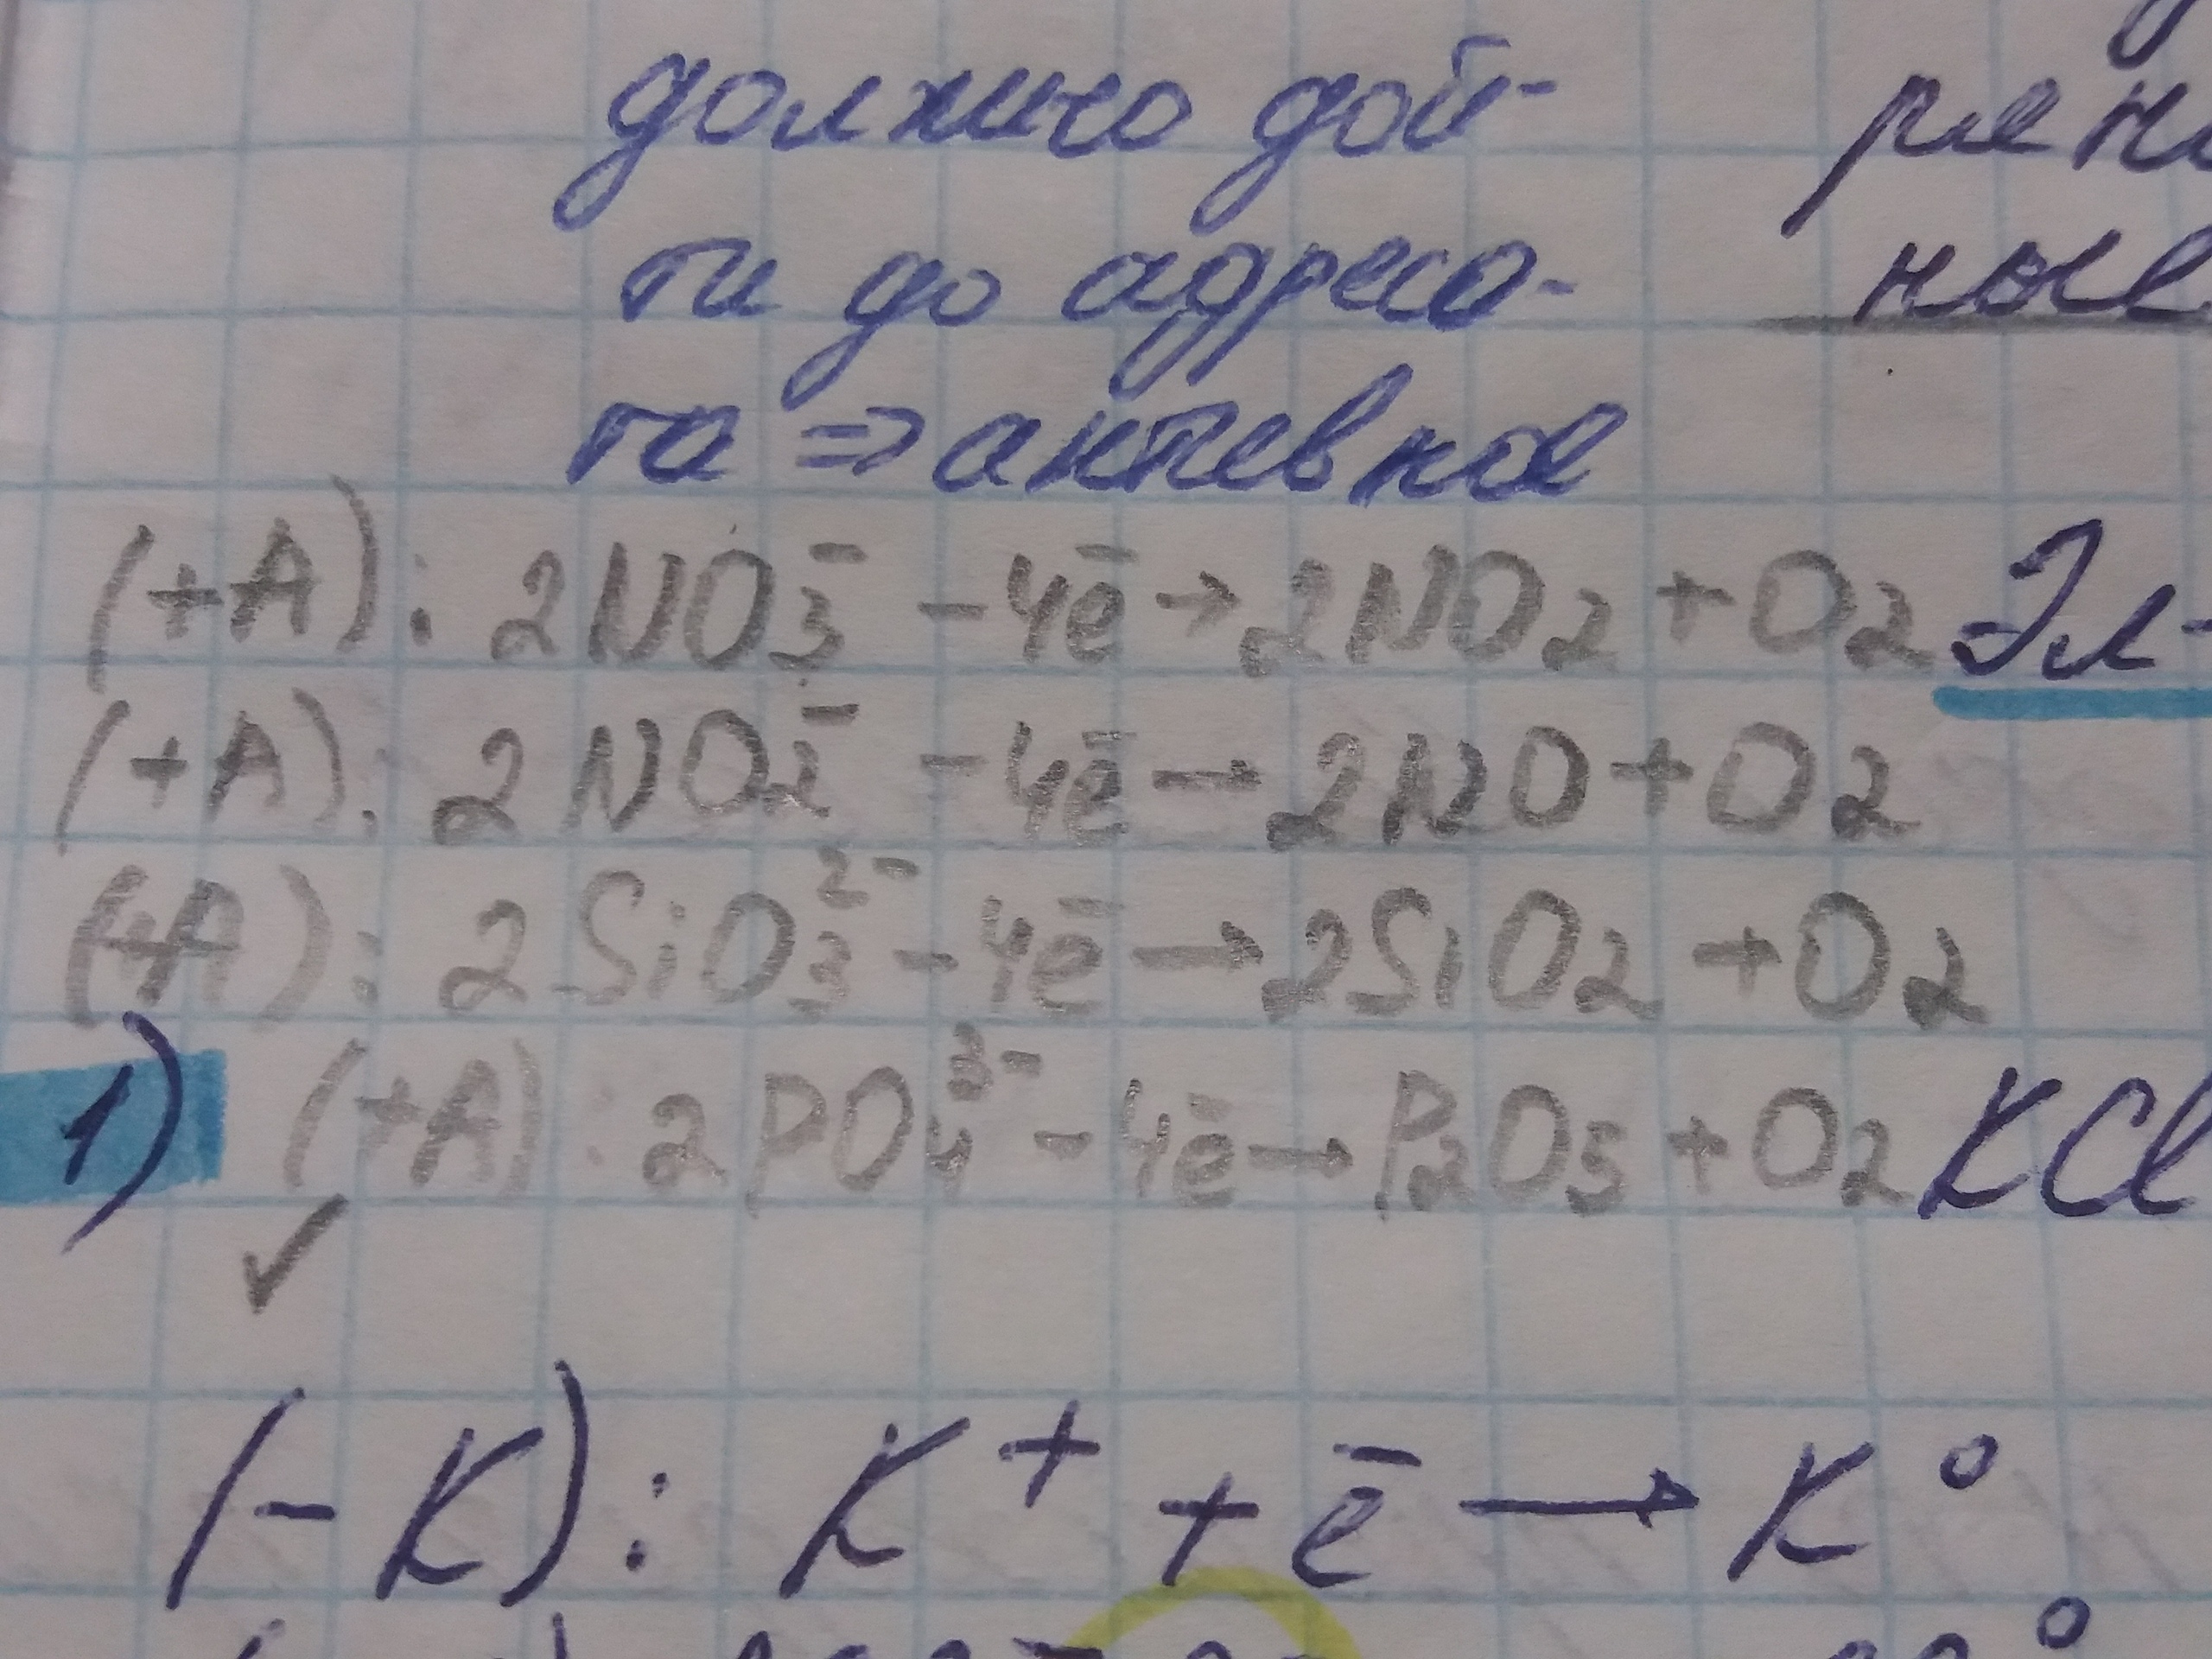 должно дой-
ти до адреса-
та => антевное
ные
(+A): 2NO₃⁻ - 4ē → 2NO₂ + O₂ Эл-
(+A): 2NO₂⁻ - 4ē → 2NO + O₂
(+A): 2SiO₃²⁻ - 4ē → 2SiO₂ + O₂
1) (+A): 2PO₄³⁻ - 4ē → P₂O₅ + O₂ KCl
✓
(-K): K⁺ + ē → K⁰